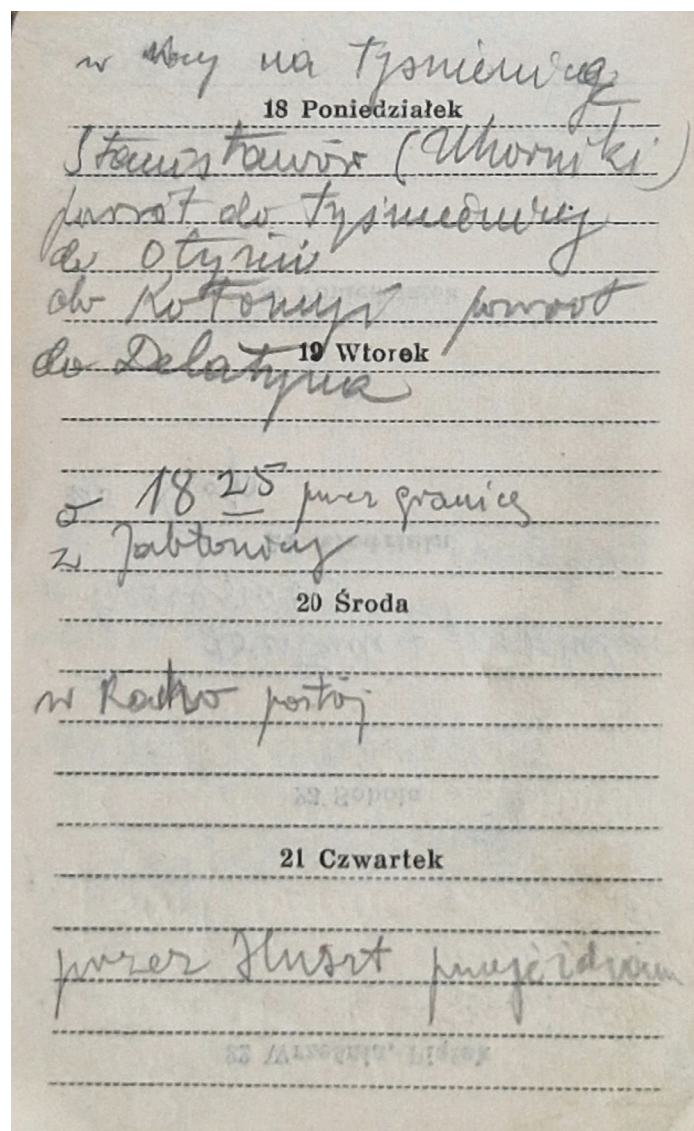 w nocy na Tyśmienicę
18 Poniedziałek
Stanisławów (Uhorniki)
powrót do Tyśmienicy
do Otynii
do Kołomyi powrót
19 Wtorek
do Delatyna
o 18 25 przez granicę
z Jabłonicy
20 Środa
w Racho postój
21 Czwartek
przez Huszt przejeżdżam